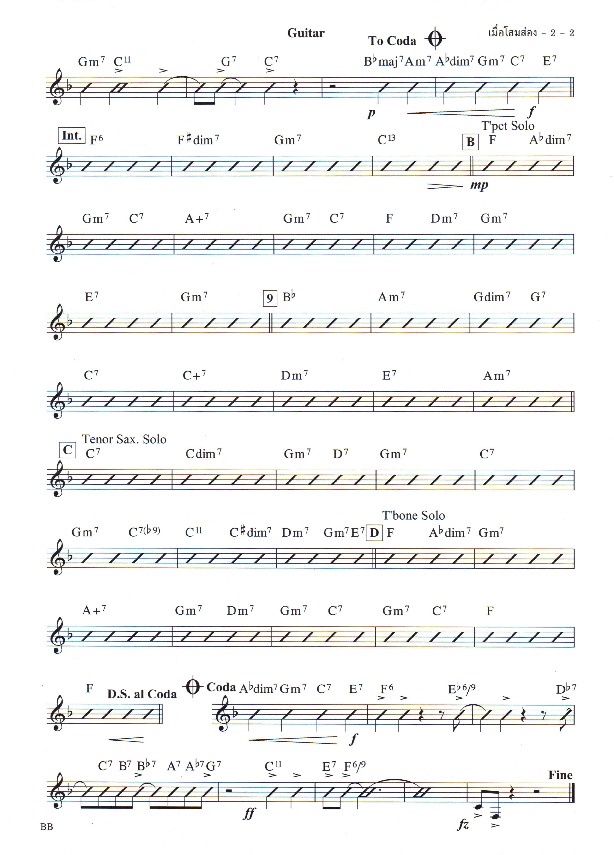 Guitar
To Coda
เมื่อโสมส่อง - 2 - 2
Gm7 C11 G7 C7 B♭maj7 Am7 A♭dim7 Gm7 C7 E7
p f
Int. F6 F♯dim7 Gm7 C13 B T'pet Solo F A♭dim7
mp
Gm7 C7 A+7 Gm7 C7 F Dm7 Gm7
E7 Gm7 9 B♭ Am7 Gdim7 G7
C7 C+7 Dm7 E7 Am7
C Tenor Sax. Solo
C7 Cdim7 Gm7 D7 Gm7 C7
T'bone Solo
Gm7 C7(♭9) C11 C♯dim7 Dm7 Gm7 E7 D F A♭dim7 Gm7
A+7 Gm7 Dm7 Gm7 C7 Gm7 C7 F
F D.S. al Coda Coda A♭dim7 Gm7 C7 E7 F6 E♭6/9 D♭7
f
C7 B7 B♭7 A7 A♭7 G7 C11 E7 F6/9 Fine
ff fz
BB